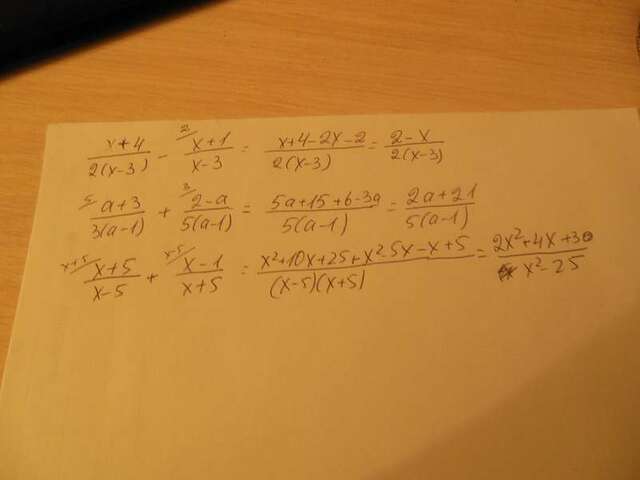 x+4/2(x-3) - 2/ x+1/x-3 = x+4-2x-2/2(x-3) = 2-x/2(x-3)
5/ a+3/3(a-1) + 3/ 2-a/5(a-1) = 5a+15+6-3a/5(a-1) = 2a+21/5(a-1)
x+5/ x+5/x-5 + x-5/ x-1/x+5 = x²+10x+25+x²-5x-x+5/(x-5)(x+5) = 2x²+4x+30/x²-25